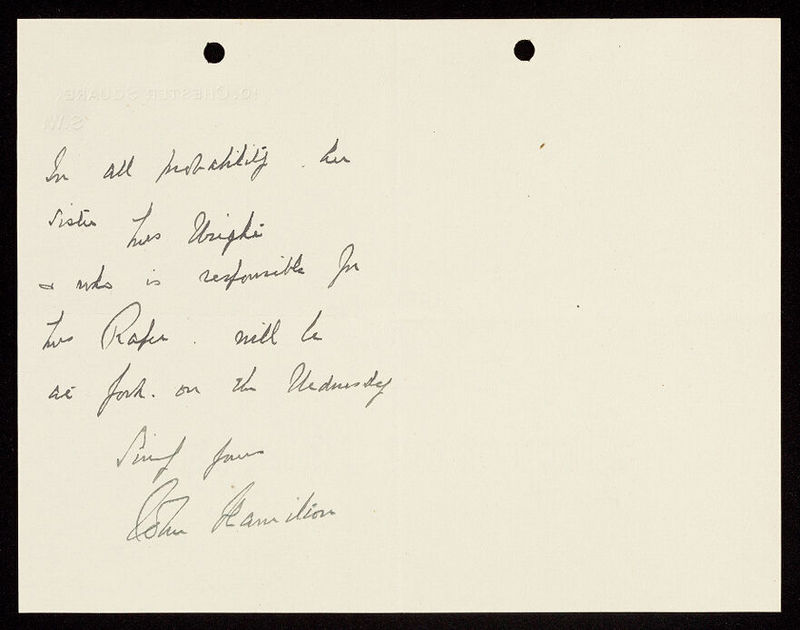 10. CHESTER SQUARE
S.W.
In all probability her
sister Mrs Wright
& who is responsible for
Mrs Raper. will be
at York. on the Wednesday
yours
Hamilton